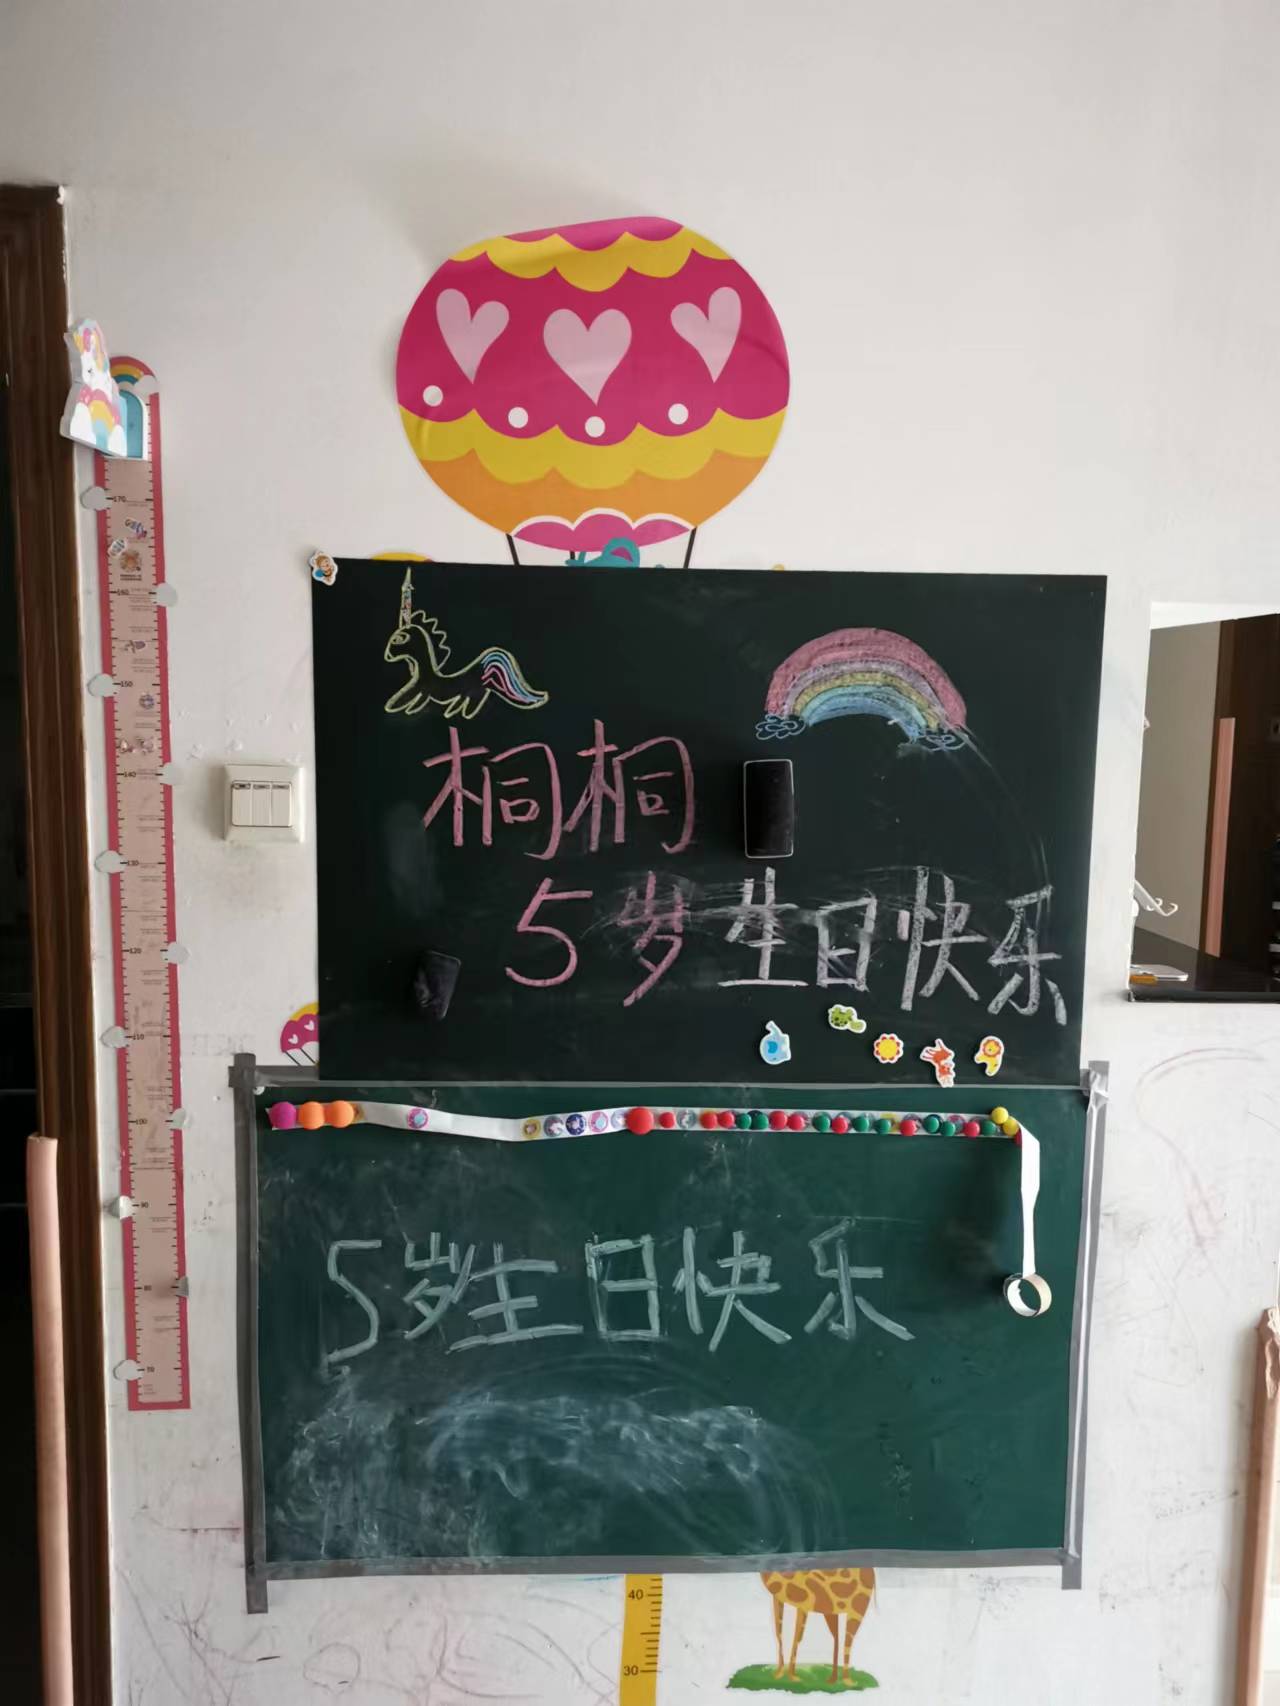 桐桐
5岁生日快乐
5岁生日快乐
170
160
150
140
130
120
110
100
90
80
70
40
30